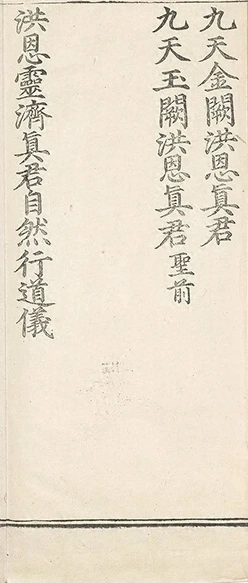 九天金闕洪恩真君
九天玉闕洪恩真君聖前
洪恩靈濟真君自然行道儀